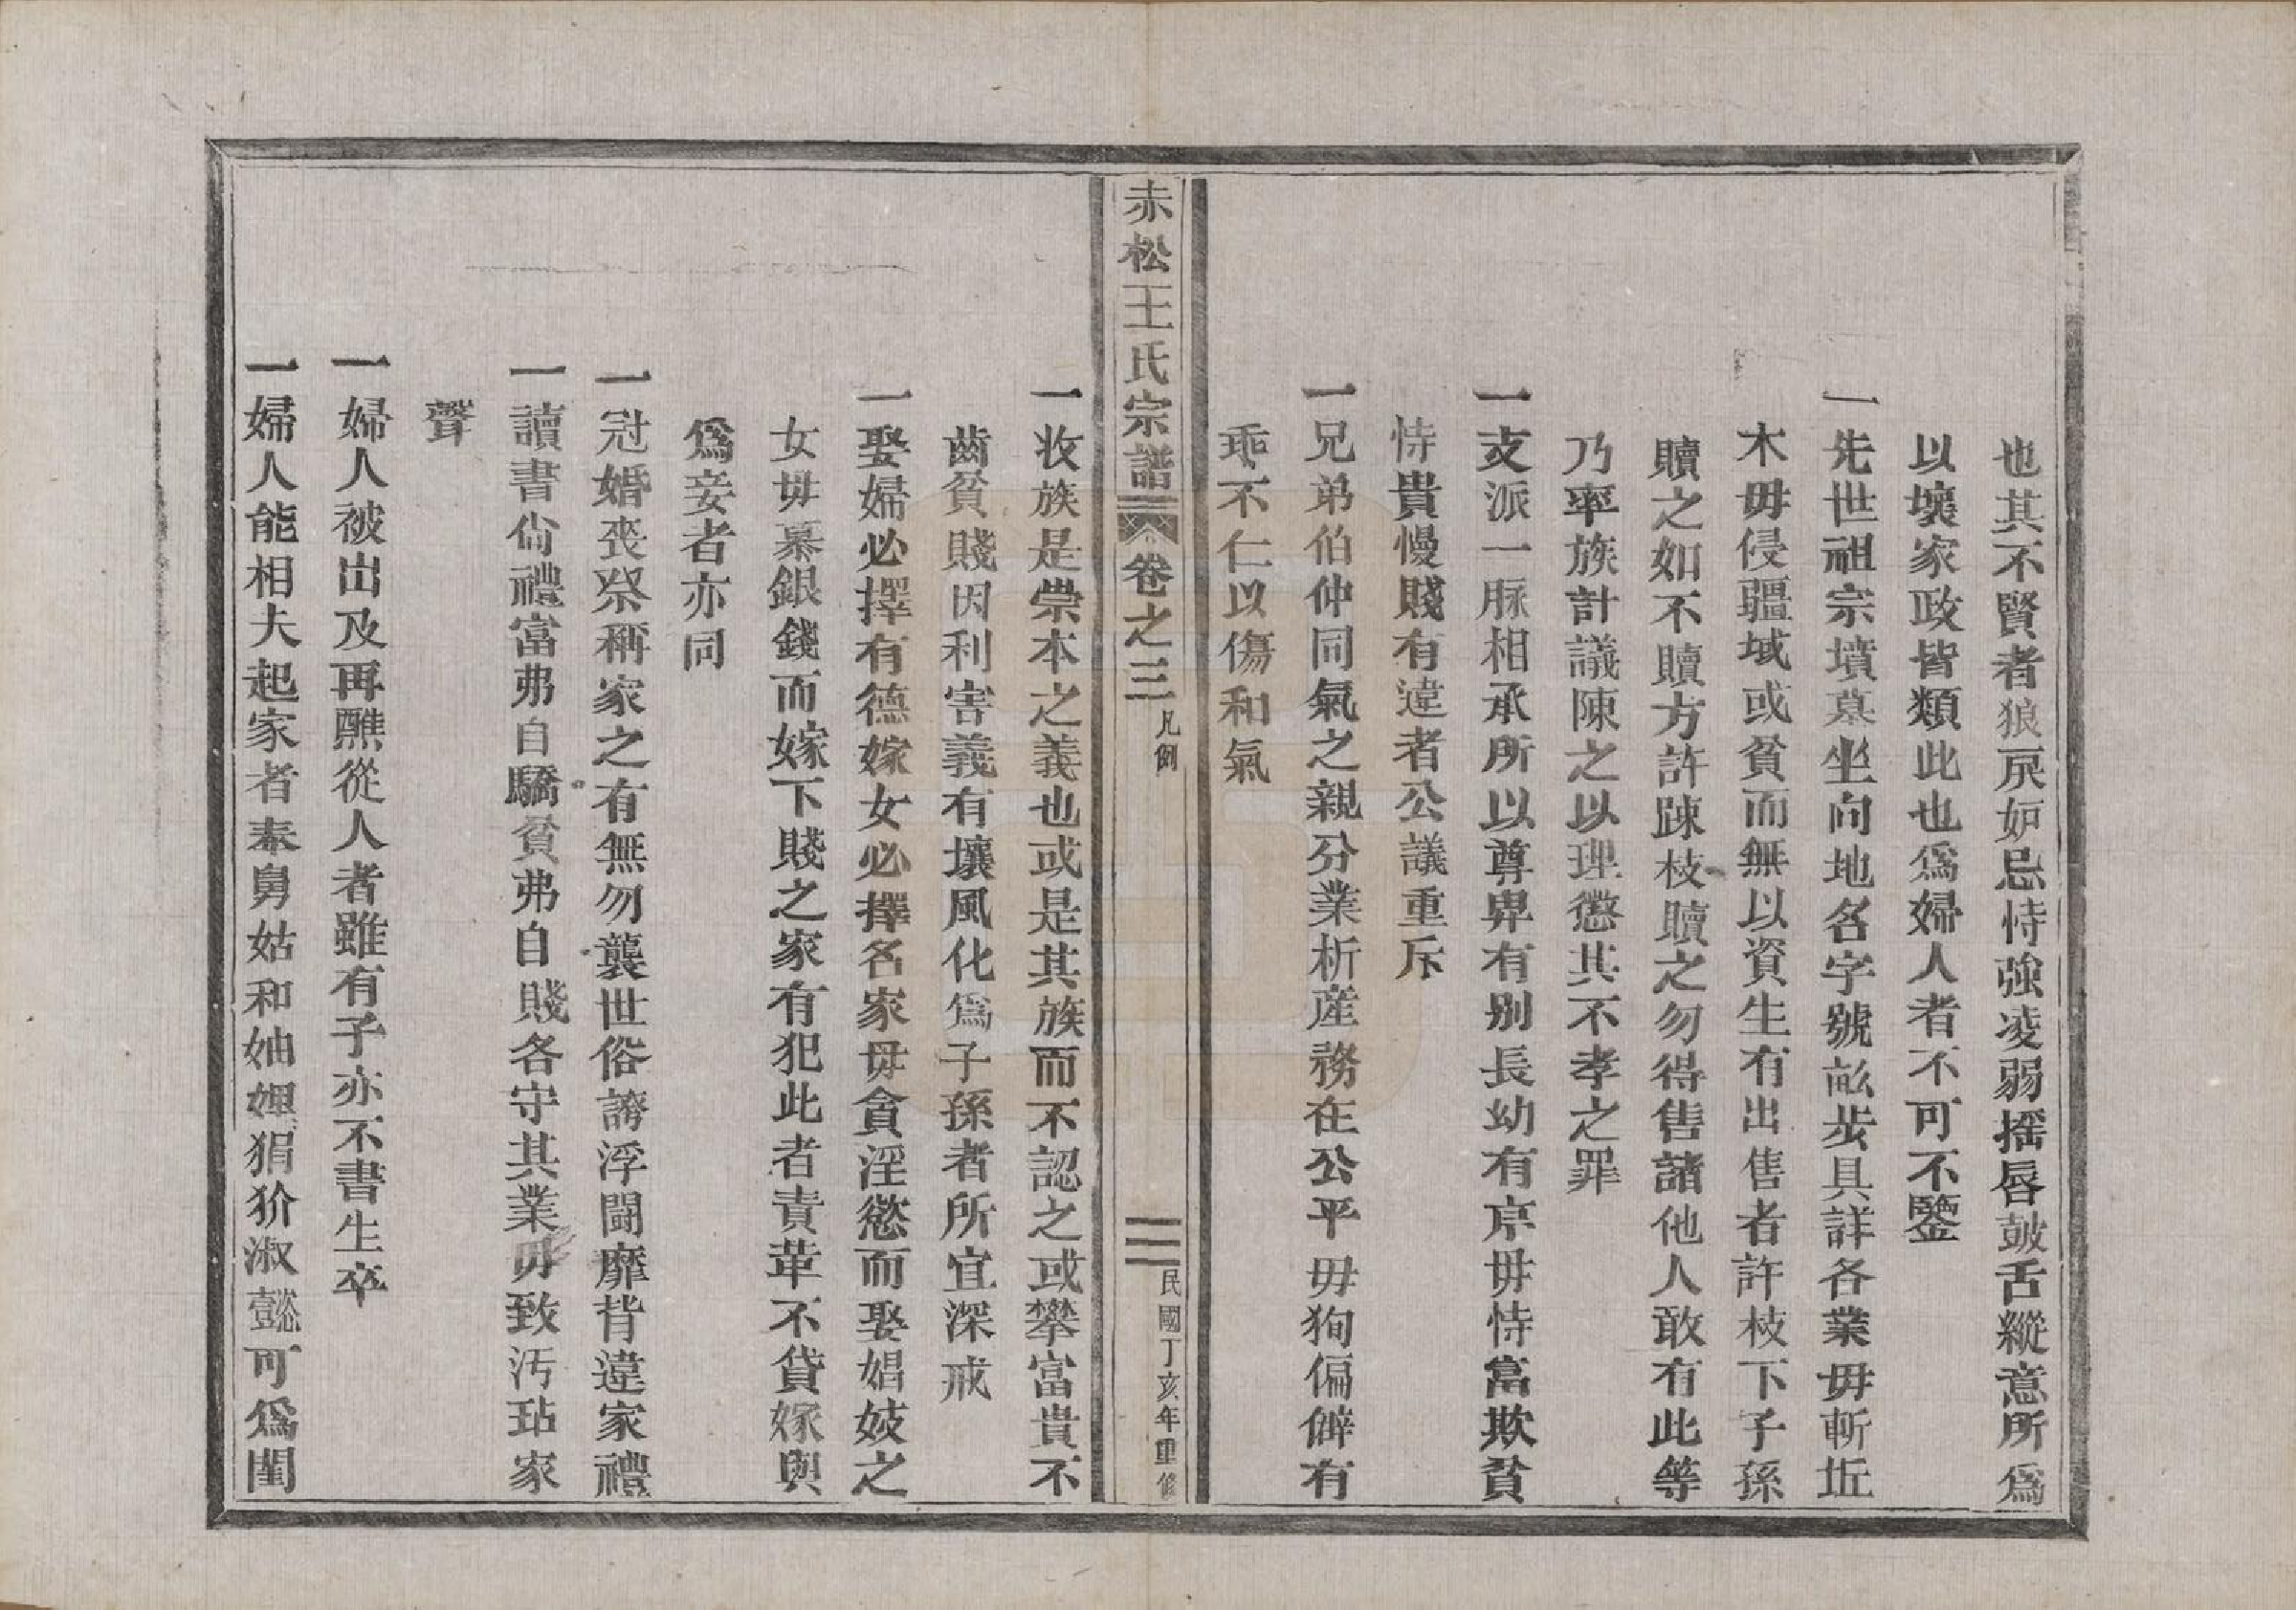 也其不賢者狼戾妒忌恃強凌弱搖唇鼓舌縱意所爲
以壞家政皆類此也爲婦人者不可不鑒
一先世祖宗墳墓坐向地名字號畝步具詳各業毋斬坵
木毋侵疆域或貧而無以資生有出售者許枝下子孫
贖之如不贖方許踈枝贖之勿得售諸他人敢有此等
乃率族計議陳之以理懲其不孝之罪
一支派一脈相承所以尊卑有别長幼有序毋恃富欺貧
恃貴慢賤有違者公議重斥
一兄弟伯仲同氣之親分業析産務在公平毋狥偏僻有
乖不仁以傷和氣
赤松王氏宗譜 卷之三 凡例 民國丁亥年重修
一收族是崇本之義也或是其族而不認之或攀富貴不
齒貧賤因利害義有壞風化爲子孫者所宜深戒
一娶婦必擇有德嫁女必擇名家毋貪淫慾而娶娼妓之
女毋慕銀錢而嫁下賤之家有犯此者責革不貸嫁與
爲妾者亦同
一冠婚喪祭稱家之有無勿襲世俗誇浮鬪靡背違家禮
一讀書尙禮富弗自驕貧弗自賤各守其業毋致汚玷家
聲
一婦人被出及再醮從人者雖有子亦不書生卒
一婦人能相夫起家者奉舅姑和妯娌狷狁淑懿可爲閨